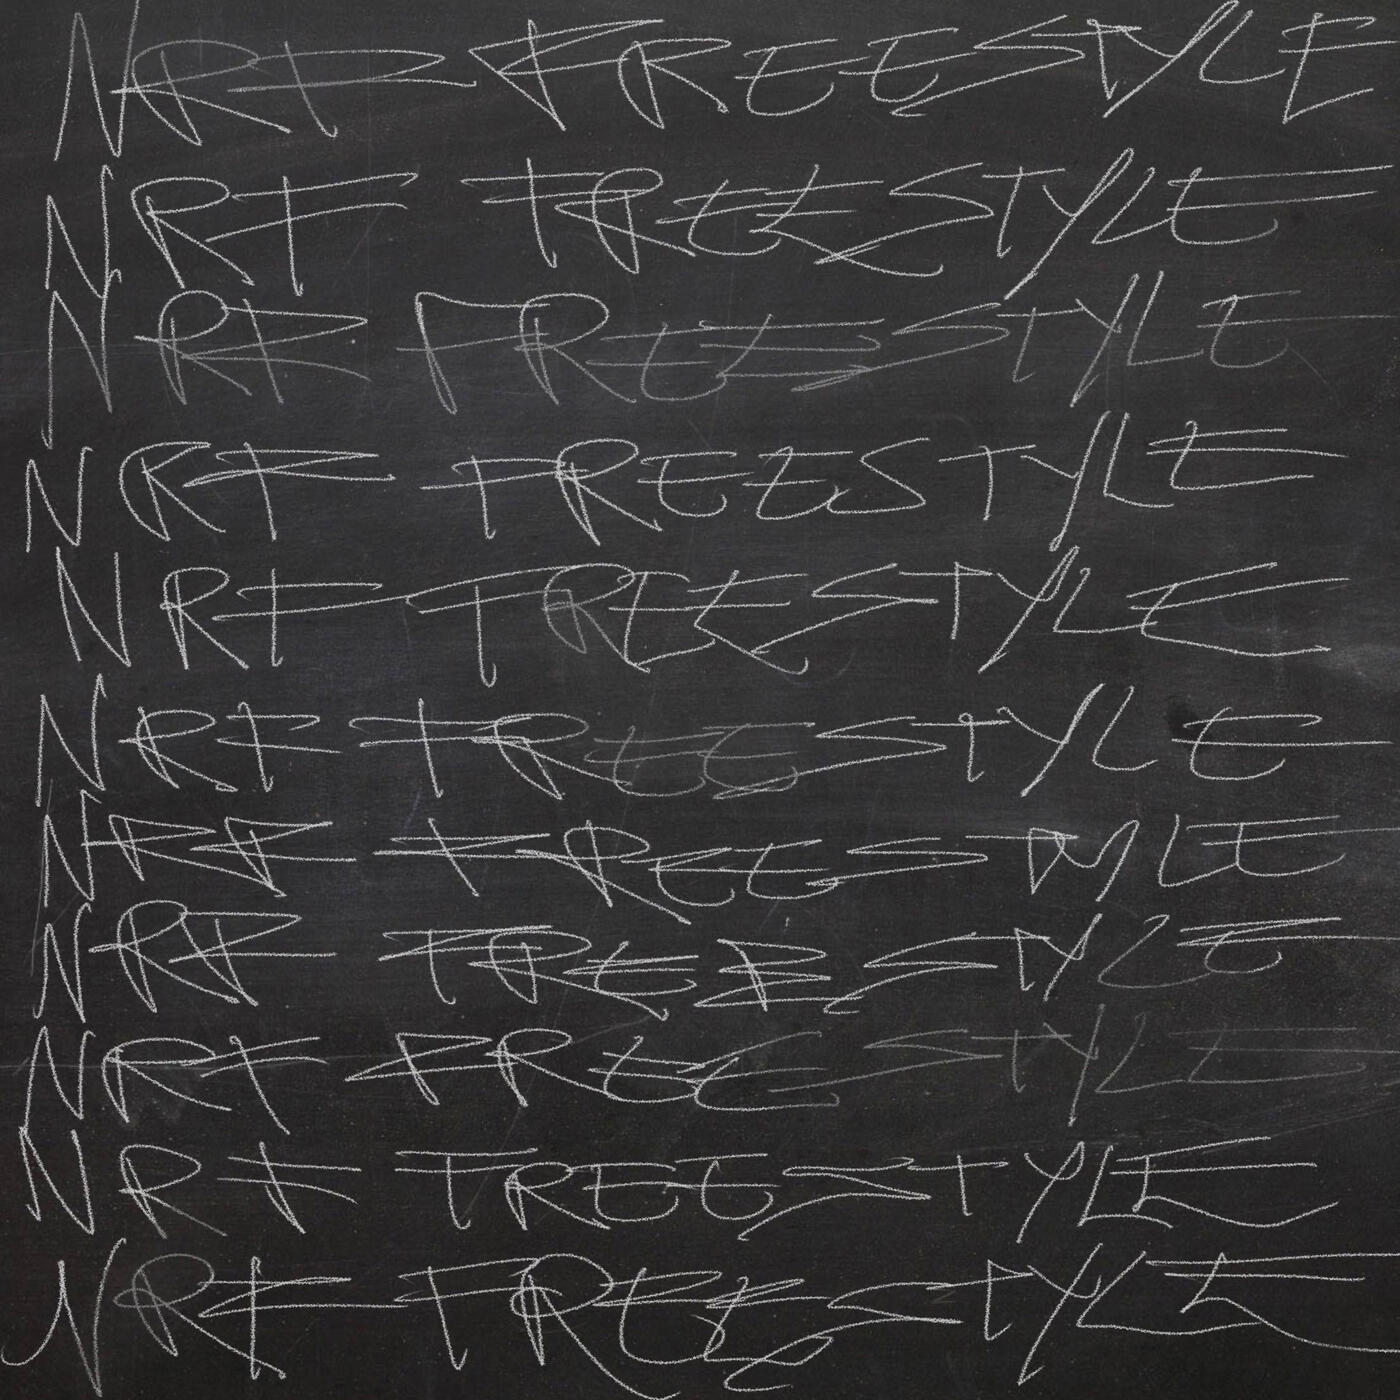 NRF FREESTYLE
NRF FREESTYLE
NRF FREESTYLE
NRF FREESTYLE
NRF FREESTYLE
NRF FREESTYLE
NRF FREESTYLE
NRF FREESTYLE
NRF FREESTYLE
NRF FREESTYLE
NRF FREESTYLE